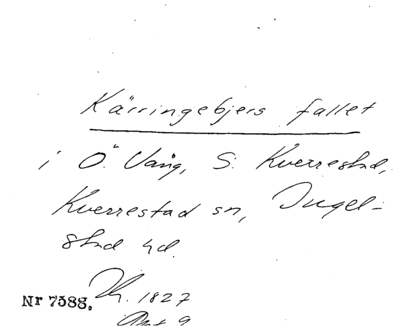 Kärringebjers fallet
i Ö. Vång, S. Kverrestad,
Kverrestad sn, Ingel-
stad hd.
Nr 7588. 1827